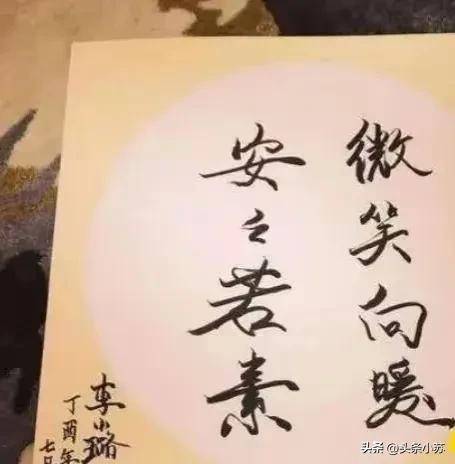 微笑向暖
安之若素
李小璐
丁酉年
七日
头条@头条小苏